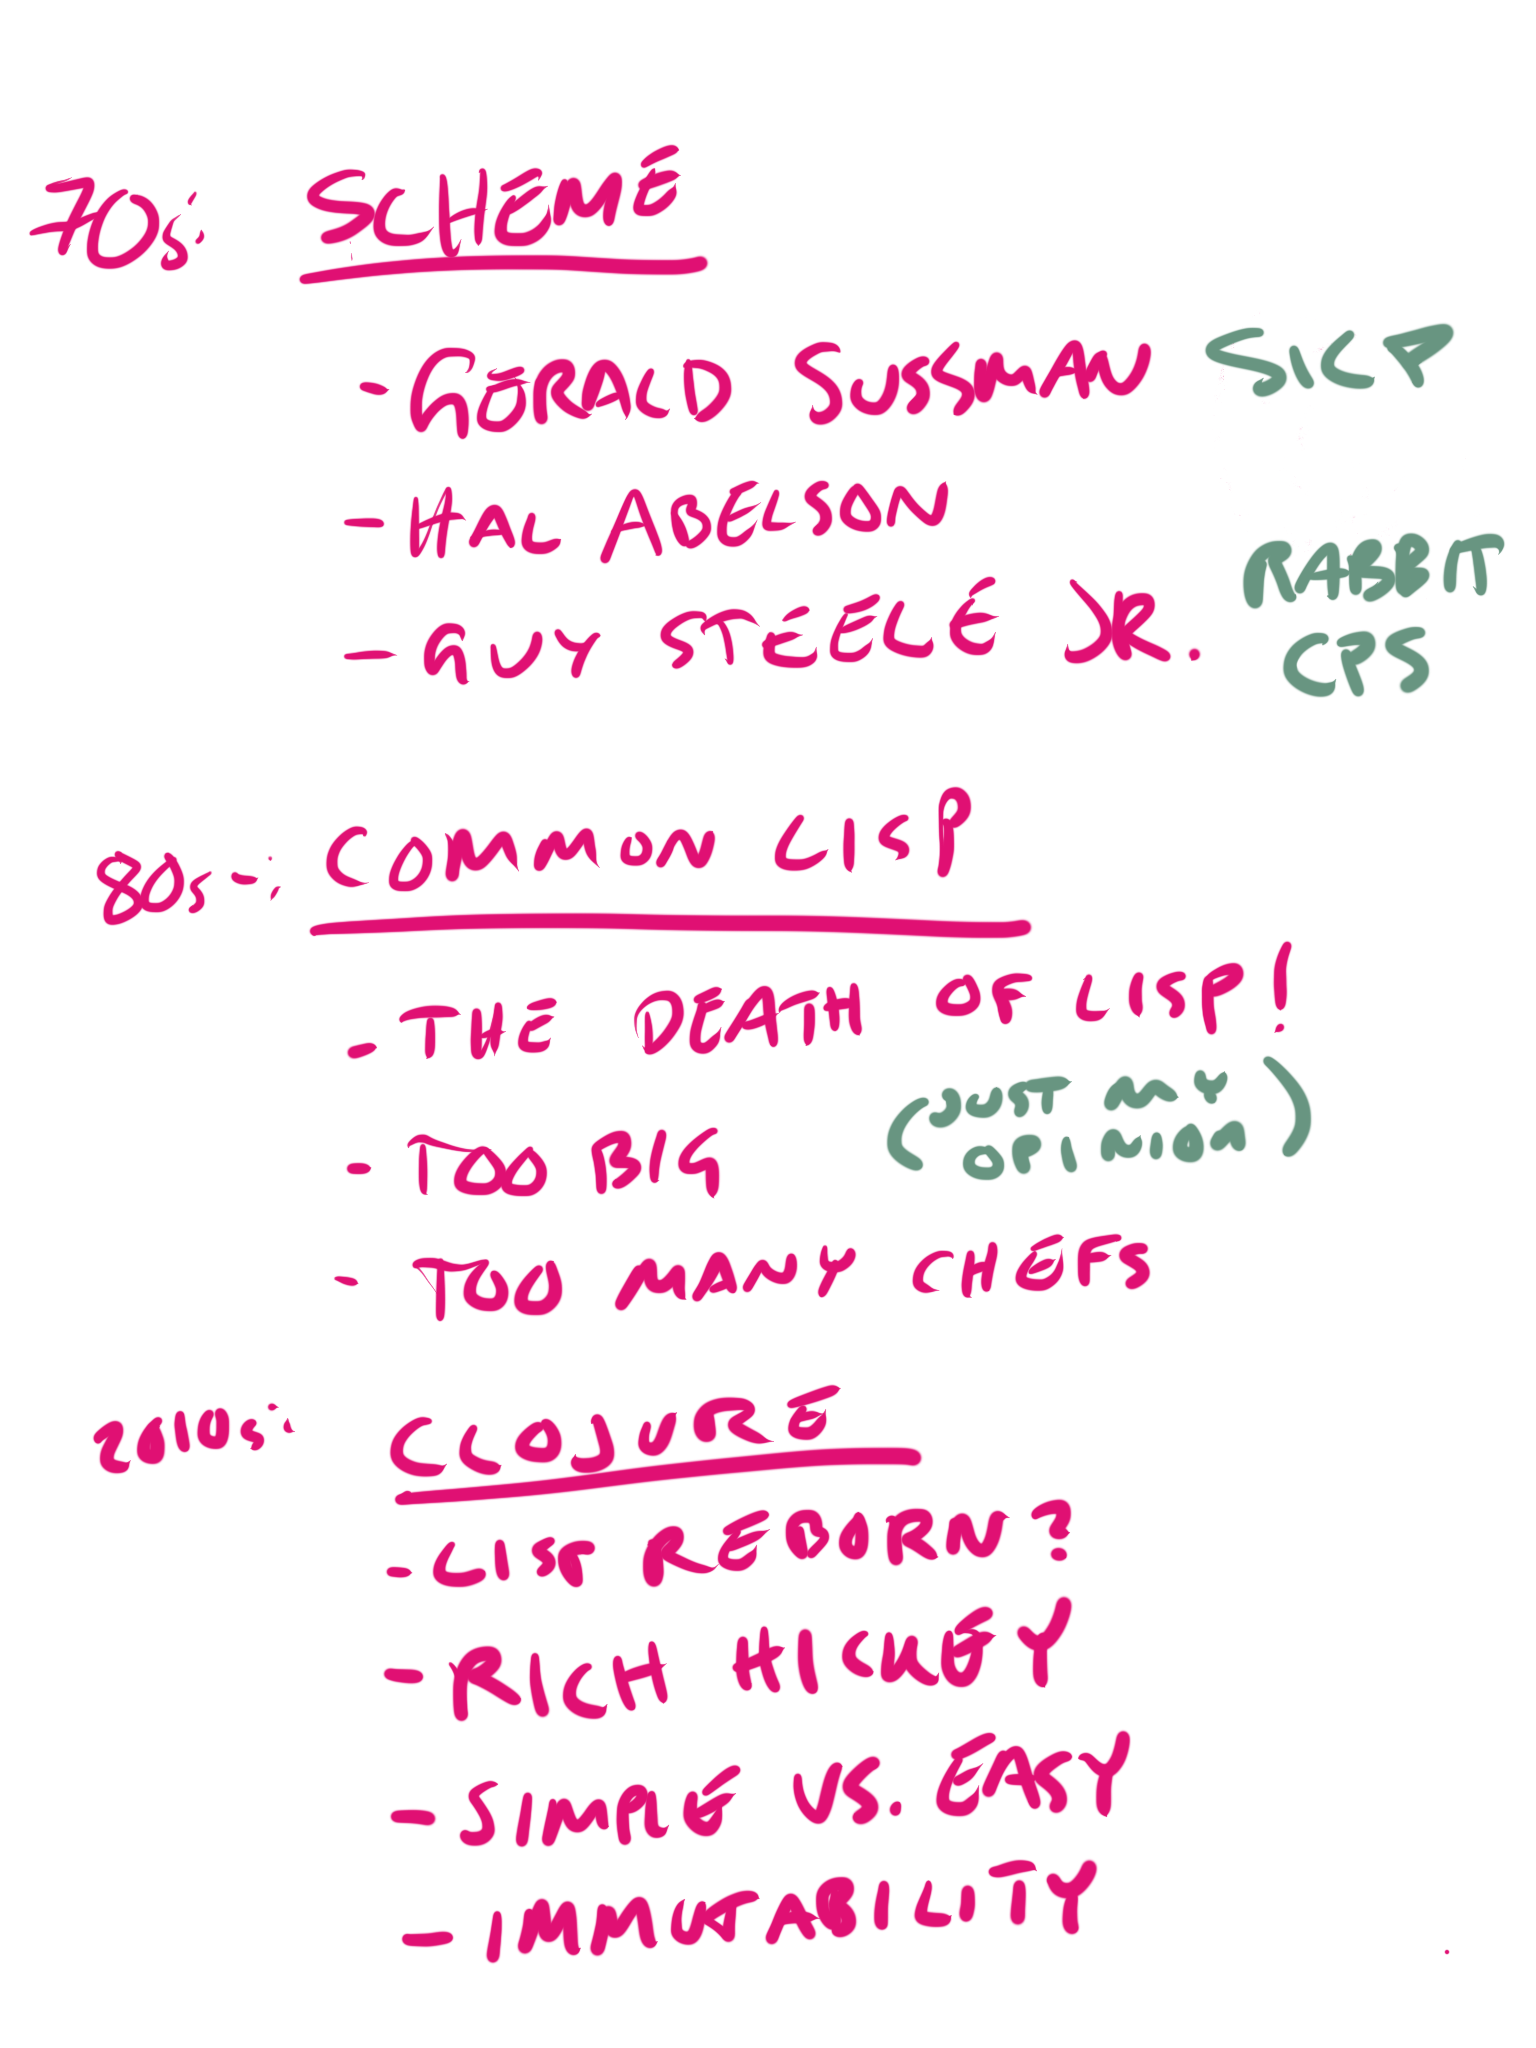 70s: SCHEME
- GERALD SUSSMAN SICP
- HAL ABELSON
- GUY STEELE JR. RABBIT
CPS
80s-: COMMON LISP
- THE DEATH OF LISP!
(JUST MY
OPINION)
- TOO BIG
- TOO MANY CHEFS
2010s: CLOJURE
- LISP REBORN?
- RICH HICKEY
- SIMPLE VS. EASY
- IMMUTABILITY